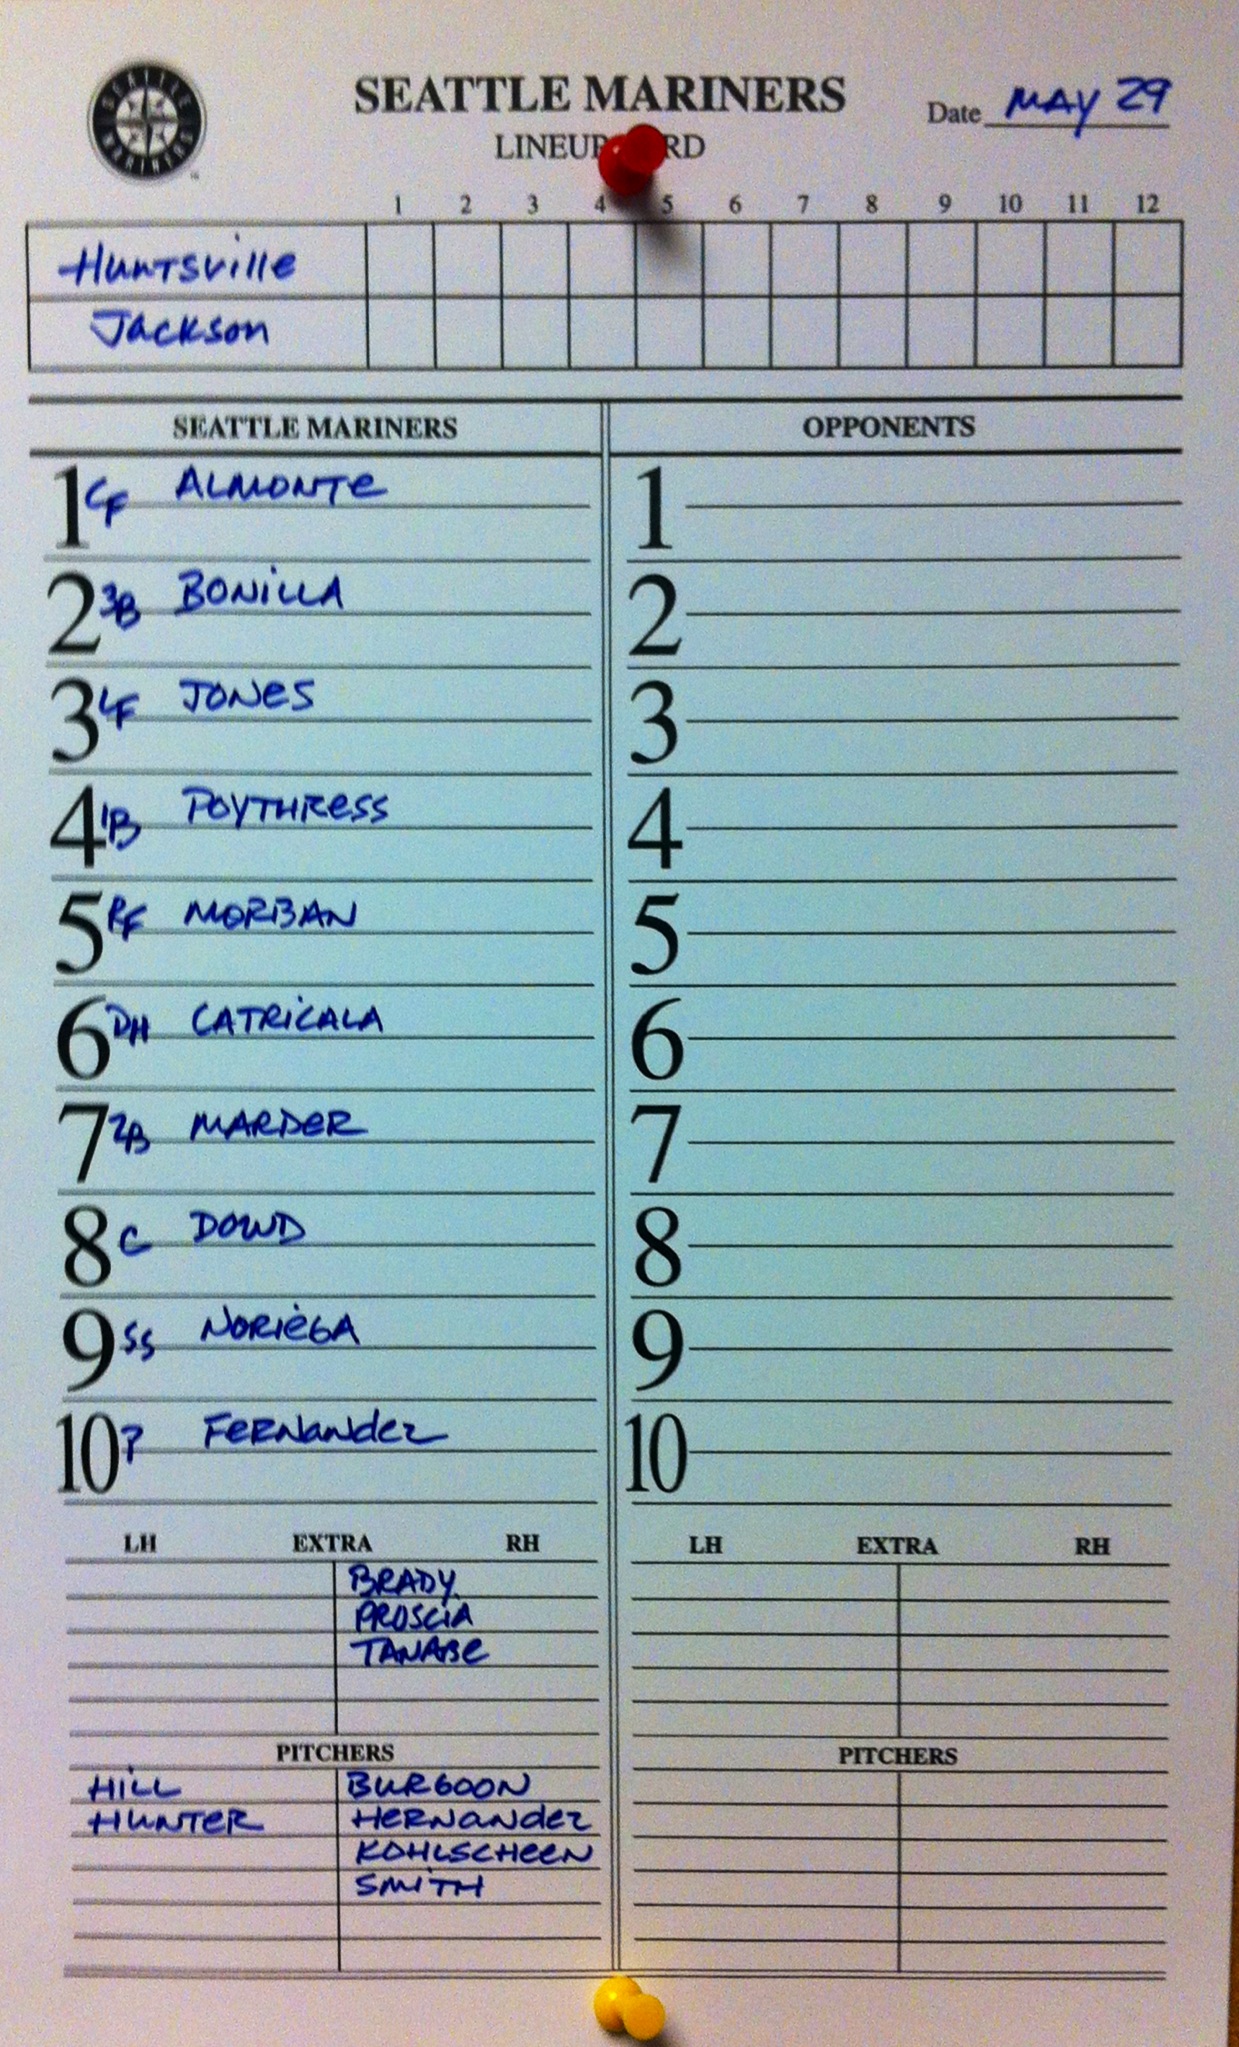 SEATTLE MARINERS
SEATTLE MARINERS
Date MAY 29
LINEUP RD
1 2 3 4 5 6 7 8 9 10 11 12
Huntsville
Jackson
SEATTLE MARINERS OPPONENTS
1 CF ALMONTE 1
2 3B BONILLA 2
3 LF JONES 3
4 1B POYTHRESS 4
5 RF MORBAN 5
6 DH CATRICALA 6
7 2B MARDER 7
8 C DOWD 8
9 SS NORIEGA 9
10 P FERNANDEZ 10
LH EXTRA RH LH EXTRA RH
BRADY
PROSCIA
TANABE
PITCHERS PITCHERS
HILL BURGOON
HUNTER HERNANDEZ
KOHLSCHEEN
SMITH